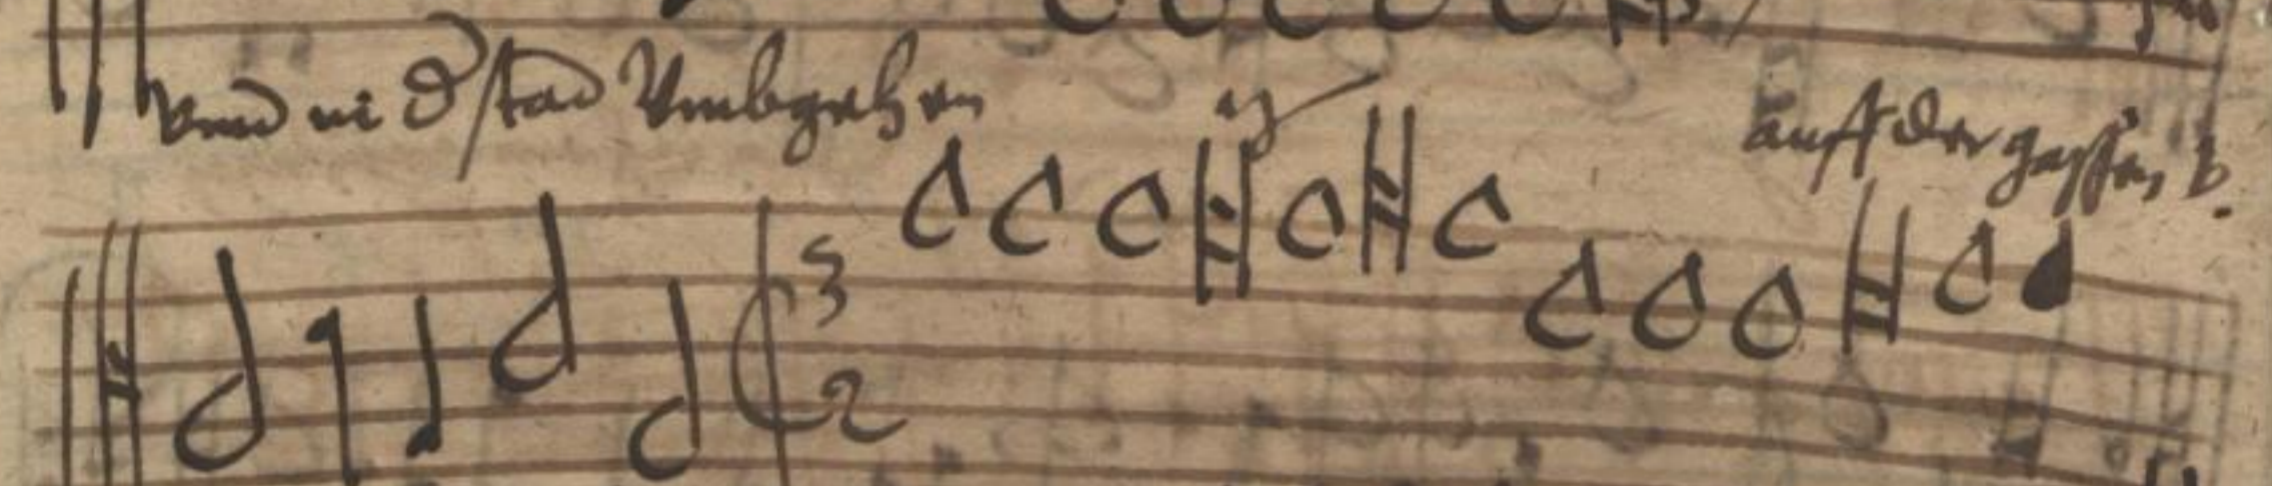 Vnd in d stad Vmbgehen ij auff der gassen
3
2